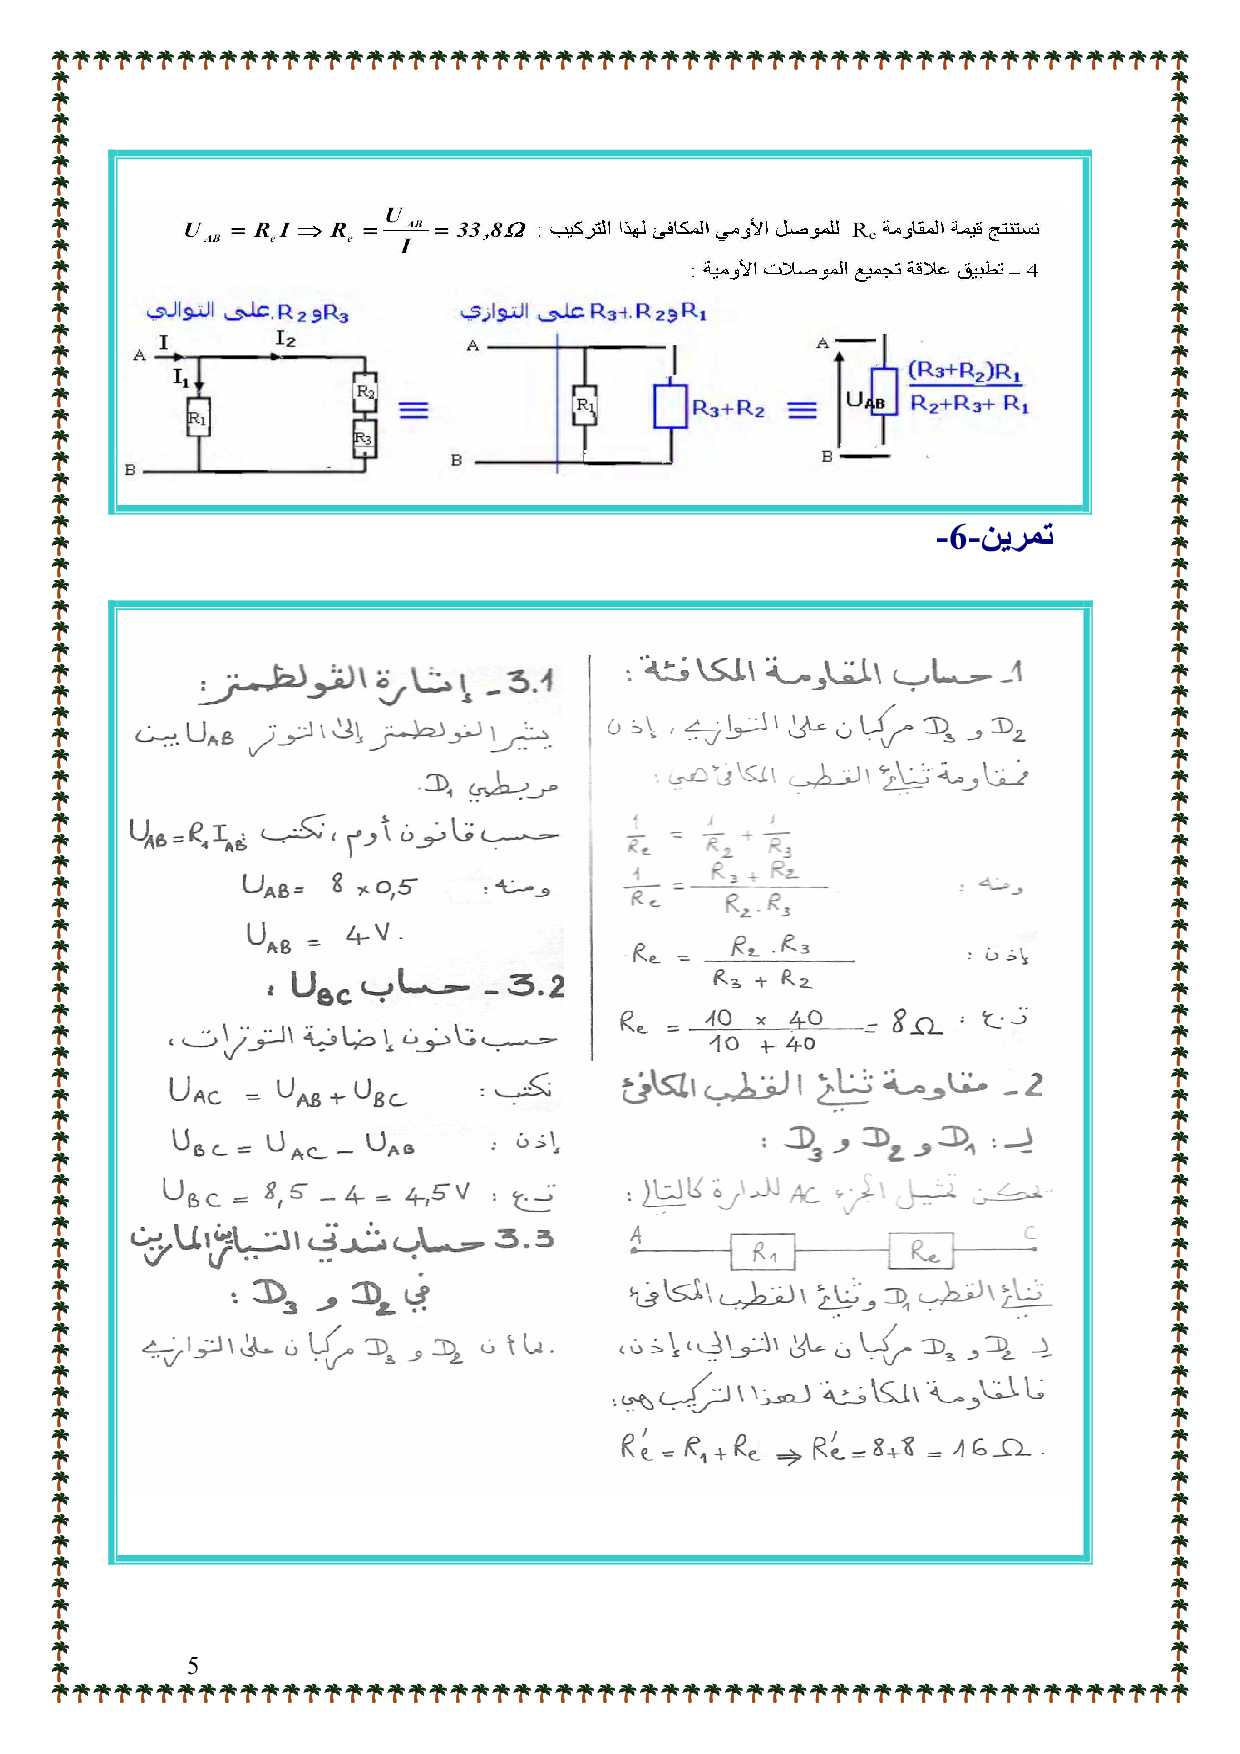 نستنتج قيمة المقاومة Re للموصل الأومي المكافئ لهذا التركيب : U AB = Re I ⇒ Re = U AB / I = 33,8Ω
4 – تطبيق علاقة تجميع الموصلات الأومية :
R3وR2 على التوالي
A I I2
I1
R1
R2
R3
B
≡
R1وR3+R2 على التوازي
A
R1
R3+R2
B
≡
A
UAB
(R3+R2)R1
R2+R3+R1
B
تمرين-6-
1- حساب المقاومة المكافئة :
D2 و D3 مركبان على التوازي ، إذن
فمقاومة ثنائي القطب المكافئ هي :
1/Re = 1/R2 + 1/R3
ومنه : 1/Re = (R3 + R2)/(R2 . R3)
إذن : Re = (R2 . R3)/(R3 + R2)
ت.ع : Re = (10 x 40)/(10 + 40) = 8Ω
2 - مقاومة ثنائي القطب المكافئ
لـ : D1 و D2 و D3 :
يمكن تمثيل الجزء AC للدارة كالتالي :
A R1 Re C
ثنائي القطب D1 وثنائي القطب المكافئ
لـ D2 و D3 مركبان على التوالي، إذن،
فالمقاومة المكافئة لهذا التركيب هي:
R'e = R1 + Re ⇒ R'e = 8+8 = 16 Ω .
3.1 - إشارة الڤولطمتر :
يشير الڤولطمتر إلى التوتر UAB بين
مربطي D1.
حسب قانون أوم ، نكتب UAB = R1 IAB :
ومنه : UAB = 8 x 0,5
UAB = 4V .
3.2 - حساب UBC :
حسب قانون إضافية التوترات ،
نكتب : UAC = UAB + UBC
إذن : UBC = UAC – UAB
ت.ع : UBC = 8,5 – 4 = 4,5V
3.3 حساب شدتي التيارين المارين
في D2 و D3 :
بما أن D2 و D3 مركبان على التوازي
5